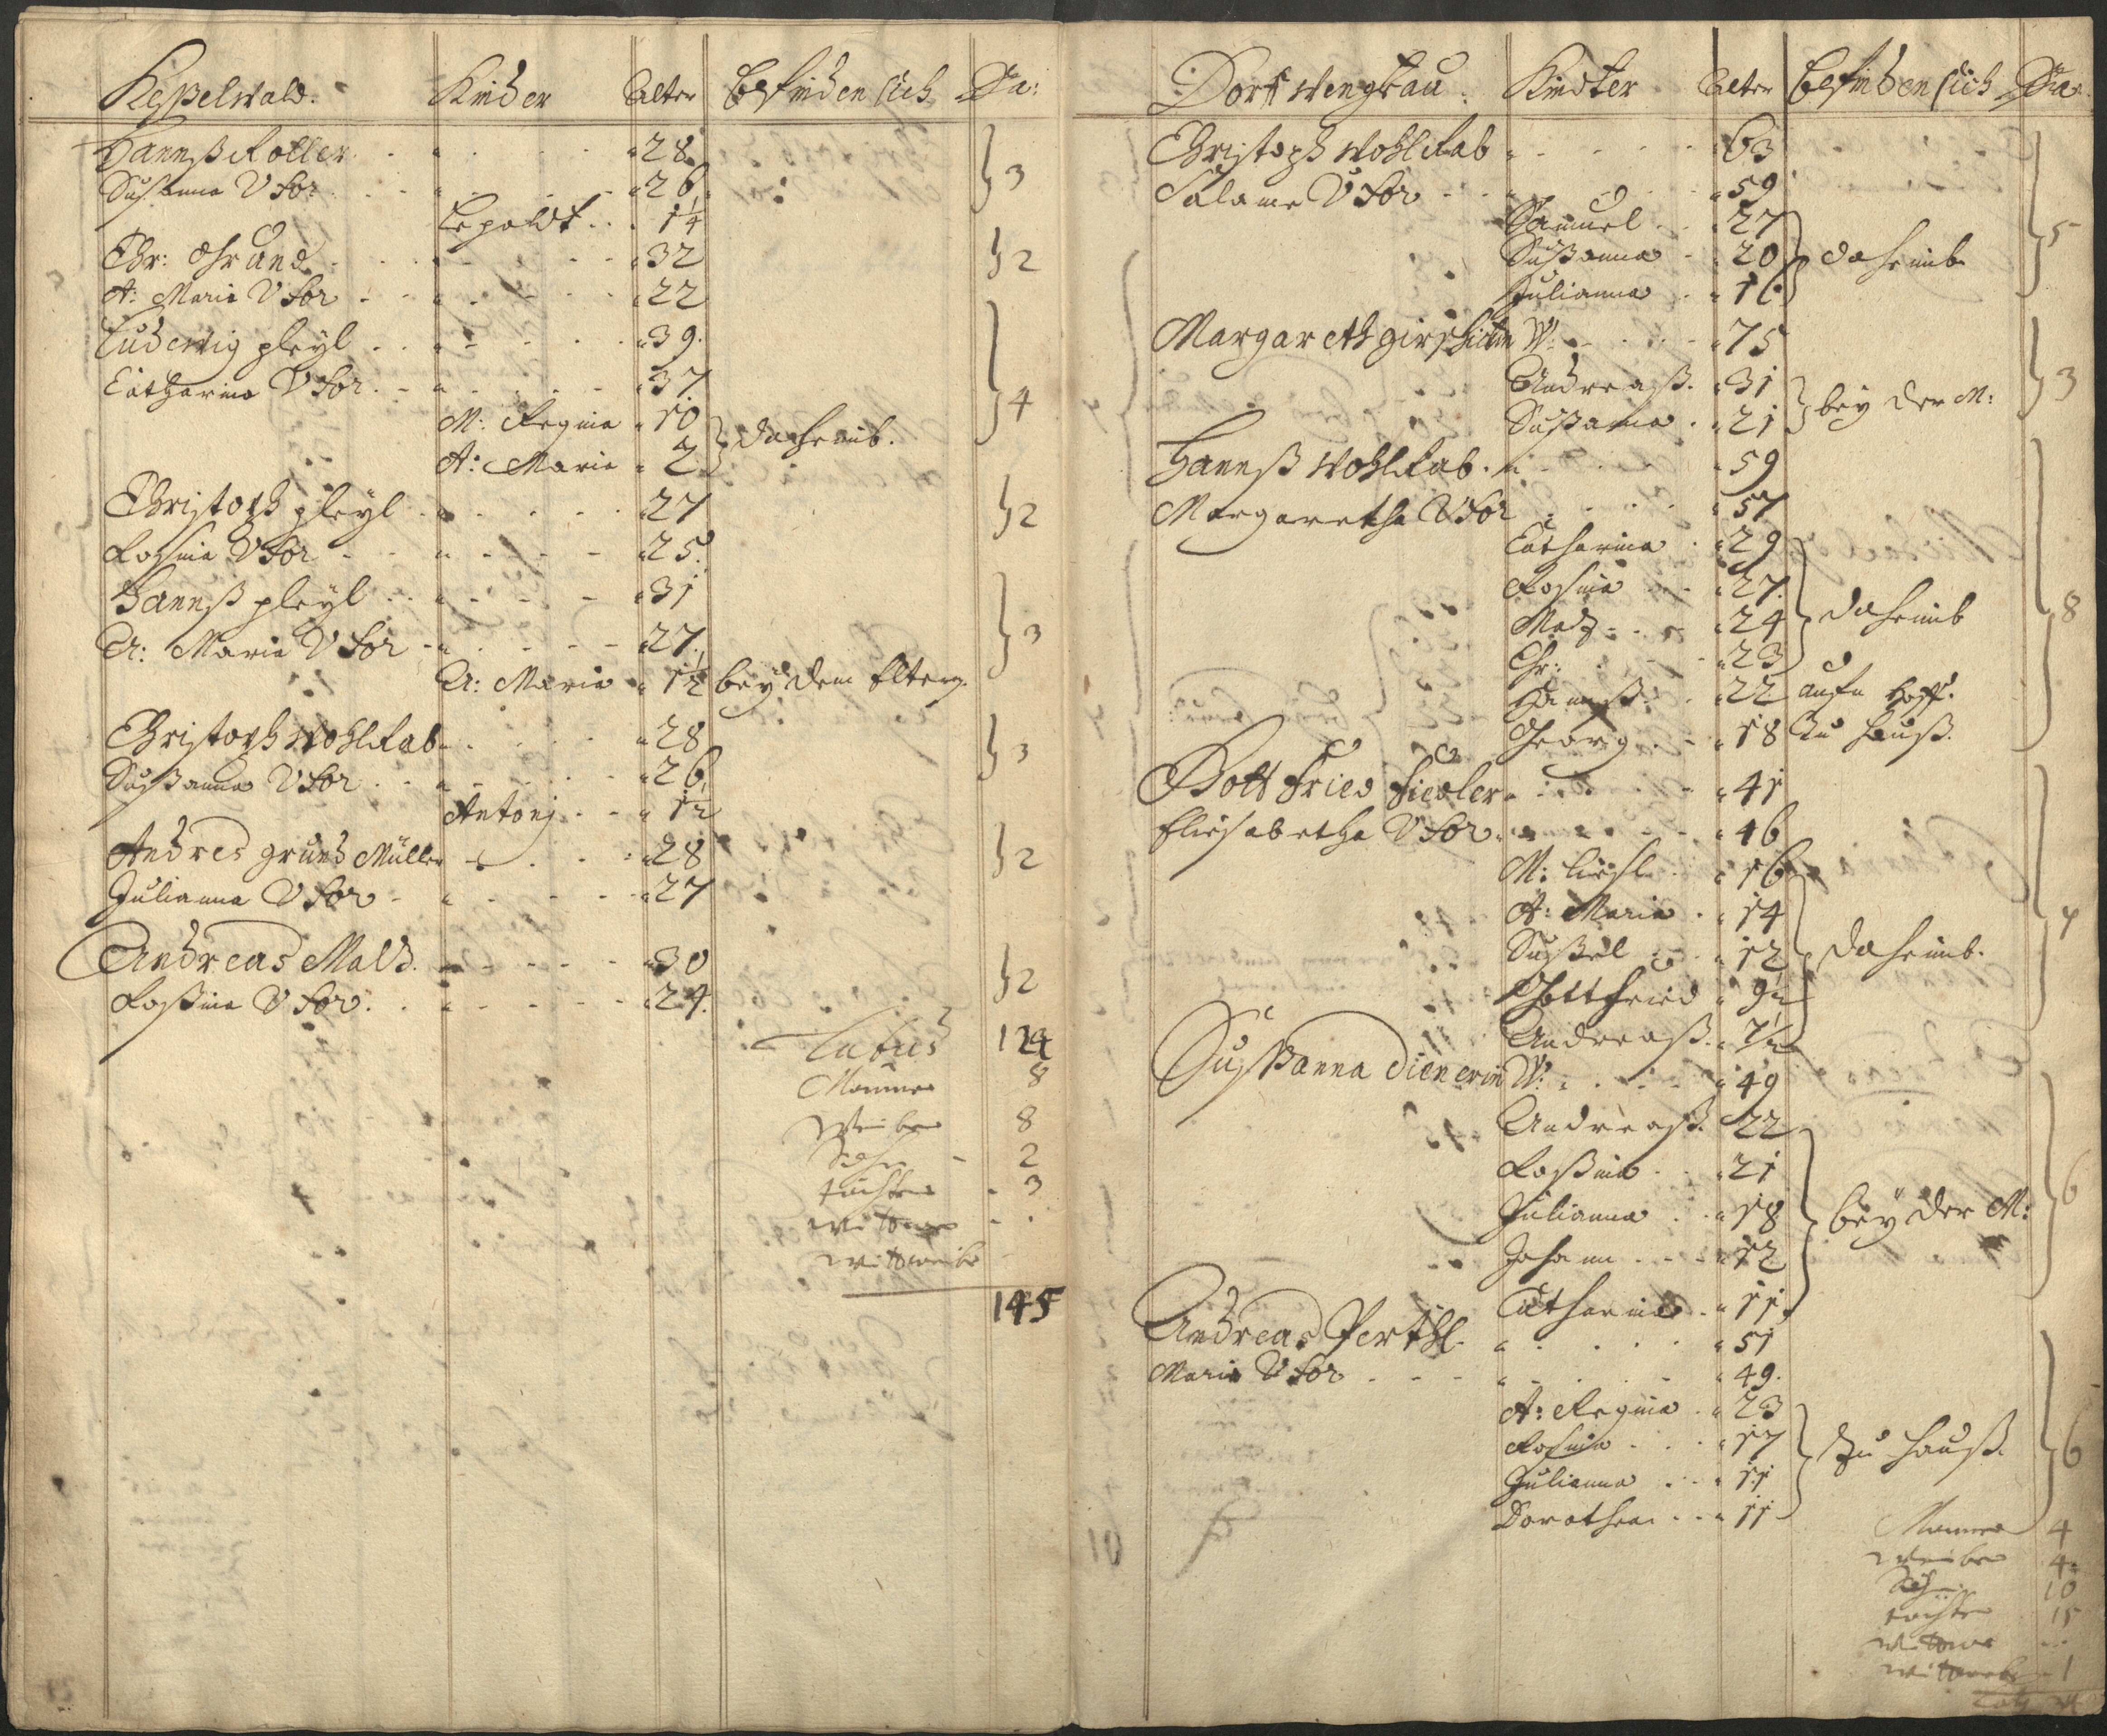 Keßelwald. Kinder Alter Befinden sich Sa:
Hannß Koller 28
Susanna Uxor 26 3
Lepoldt 1¼
Chr: Grund 32 2
A: Maria Uxor 22
Ludewig pleyl 39.
Catharina Uxor 37. 4
M: Regina 10
A: Maria 2 daheimb.
Christoph pleyl 27 2
Rosina Uxor 25.
Hannß pleyl 31
A: Maria Uxor 27. 3
A: Maria 1½ bey dem Eltern.
Christoph Wohlrab 28 3
Sußanna Uxor 26
Antonj 1½
Andres grund Müller 28 2
Julianna Uxor 27
Andreas Mald. 30 2
Roßina Uxor 24.
Latus 124
Männer 8
Weiber 8
Söhn 2
Töchter 3
Wittwer
Wittweiber
145
Dorf Wengkau. Kindter Alter Befinden sich Sa:
Christoph Wohlrab 63
Salome Uxor 59
Samuel 27 5
Sußanna 20 daheimb
Julianna 16
Margareth W: 75
Andreaß 31 bey der M: 3
Sußanna 21
Hannß Wohlrab 59
Margaretha Uxor 57
Catharina 29
Rosina 27.
Matz 24 daheimb 8
Chr: 23
Hannß 22 Hoff.
Georg 18 zu Hauß.
Gottfried Fiedler 41
Eliesabetha Uxor 46
M: Liesl 16
A: Maria 14 7
Sußel 12 daheimb.
Gottfried 9½
Andreaß 7½
Sußanna Dienerin W: 49
Andreaß 22
Roßina 21
Julianna 18 bey der M: 6
Johann 12
Catharina 11.
Andreas Perthl 51
Maria Uxor 49.
A: Regina 23
Rosina 17 zu Hauß. 6
Julianna 11
Dorothea 11
Männer 4
Weiber 4
Söhn 10
Töchter 15
Wittwer
Wittweiber 1
10